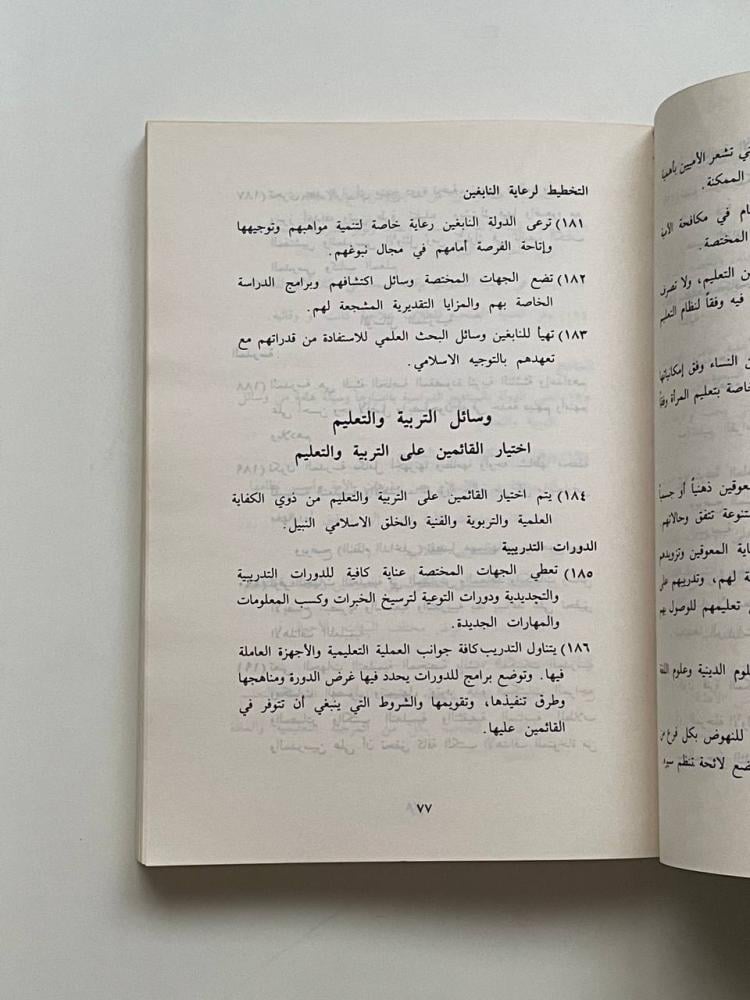 التخطيط لرعاية النابغين
١٨١) ترعى الدولة النابغين رعاية خاصة لتنمية مواهبهم وتوجيهها
وإتاحة الفرصة أمامهم في مجال نبوغهم.
١٨٢) تضع الجهات المختصة وسائل اكتشافهم وبرامج الدراسة
الخاصة بهم والمزايا التقديرية المشجعة لهم.
١٨٣) تهيأ للنابغين وسائل البحث العلمي للاستفادة من قدراتهم مع
تعهدهم بالتوجيه الاسلامي.
وسائل التربية والتعليم
اختيار القائمين على التربية والتعليم
١٨٤) يتم اختيار القائمين على التربية والتعليم من ذوي الكفاية
العلمية والتربوية والفنية والخلق الاسلامي النبيل.
الدورات التدريبية
١٨٥) تعطي الجهات المختصة عناية كافية للدورات التدريبية
والتجديدية ودورات التوعية لترسيخ الخبرات وكسب المعلومات
والمهارات الجديدة.
١٨٦) يتناول التدريب كافة جوانب العملية التعليمية والأجهزة العاملة
فيها. وتوضع برامج للدورات يحدد فيها غرض الدورة ومناهجها
وطرق تنفيذها، وتقويمها والشروط التي ينبغي أن تتوفر في
القائمين عليها.
٧٧
تشعر الأميين بأهمية
الممكنة.
في مكافحة الأمية
المختصة.
التعليم، ولا تصرف
فيه وفقاً لنظام التعليم
النساء وفق إمكانياتها
خاصة بتعليم المرأة وفقاً
معوقين ذهنياً أو جسمياً
تتفق وحالاتهم
المعوقين وتزويدهم
لهم، وتدريبهم على
تعليمهم للوصول بهم
الدينية وعلوم اللغة
للنهوض بكل فرع من
لائحة تنظم سير